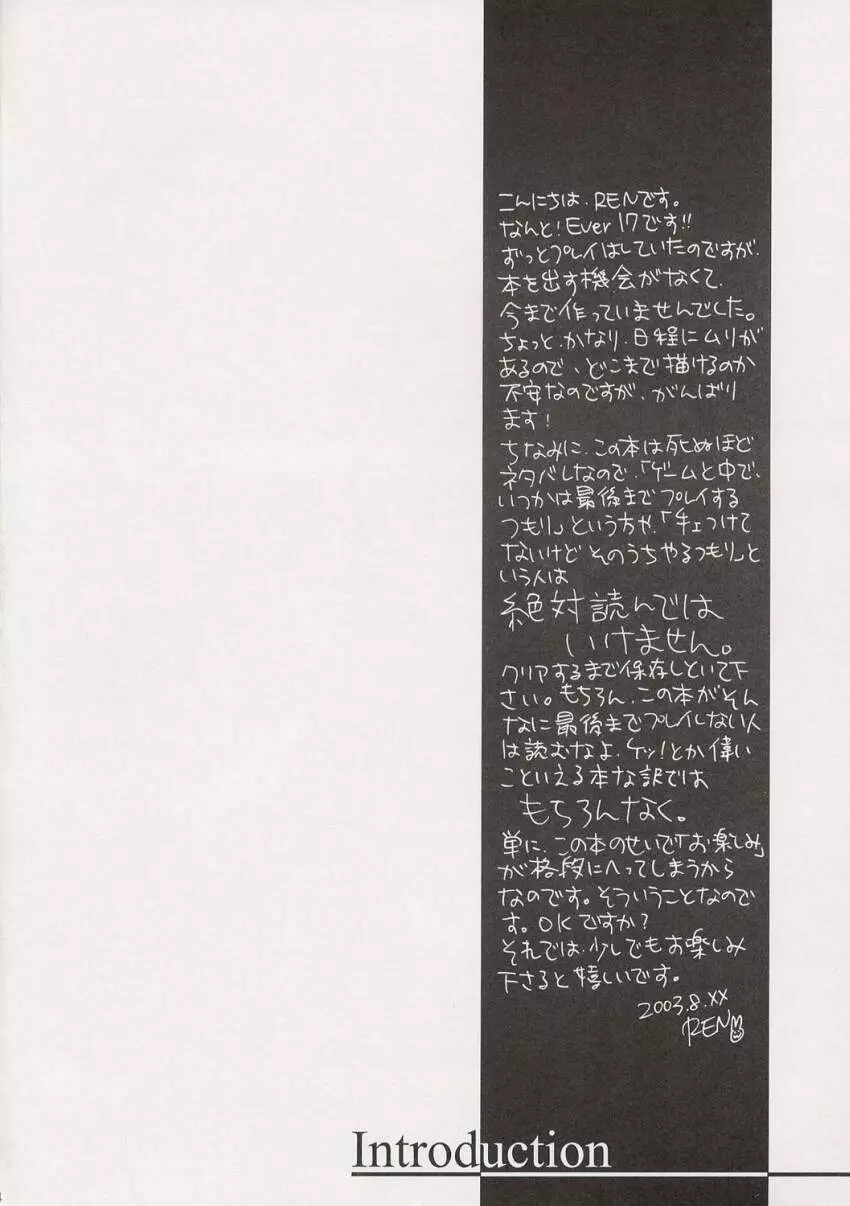 こんにちは、RENです。
なんと!Ever17です!!
ずっとプレイはしていたのですが、
本を出す機会がなくて、
今まで作っていませんでした。
ちょっと、かなり、日程にムリが
あるので、どこまで描けるのか
不安なのですが、がんばり
ます!
ちなみに、この本は死ぬほど
ネタバレなので、「ゲームと中で、
いつかは最後までプレイする
つもり」という方や、「手ェつけて
ないけどそのうちやるつもり」と
いう人は
絶対読んでは
いけません。
クリアするまで保存しといて下
さい。もちろん、この本がそん
なに最後までプレイしない人
は読むなよ、ケッ!とか偉い
こといえる本な訳では
もちろんなく。
単に、この本のせいで「お楽しみ」
が格段にへってしまうから
なのです。そういうことなので
す。OKですか?
それでは、少しでもお楽しみ
下さると嬉しいです。
2003.8.XX
REN
Introduction
4